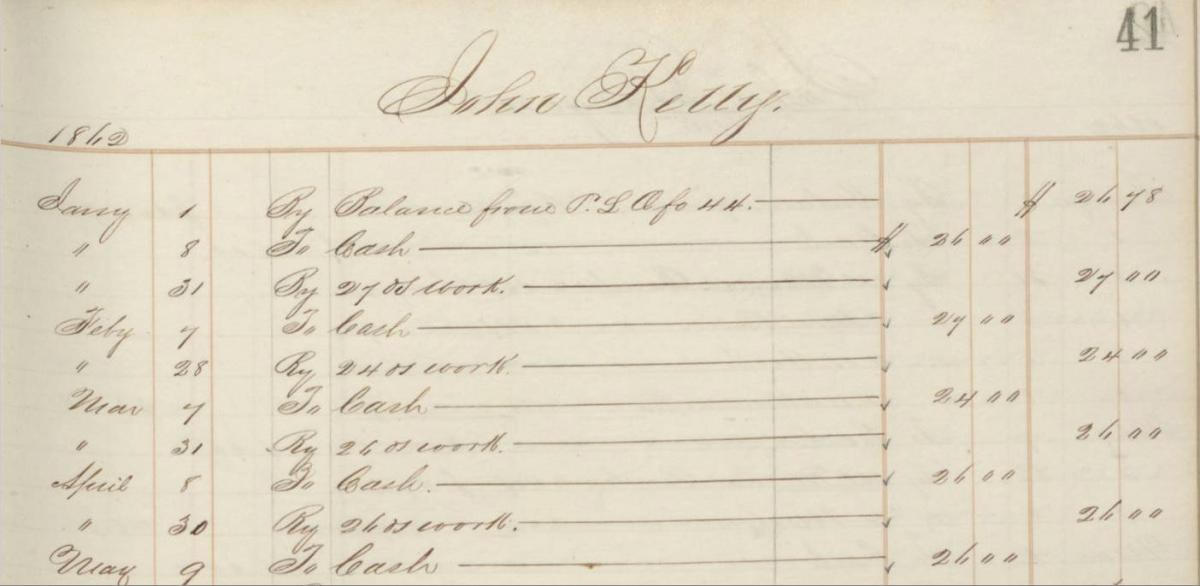 41
John Kelly.
1862
Jany 1 By Balance from P. L. B fo 44. $ 26 78
" 8 To Cash $ 26 " "
" 31 By 27 ds work. 27 " "
Feby 7 To Cash 27 " "
" 28 By 24 ds work. 24 " "
Mar 7 To Cash 24 " "
" 31 By 26 ds work. 26 " "
April 8 To Cash. 26 " "
" 30 By 26 ds work. 26 " "
May 9 To Cash 26 " "